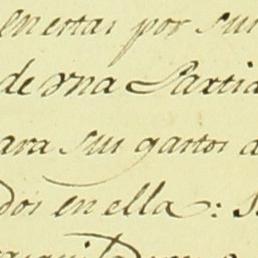 en estas por sus
de vna Partid
ara sus gastos d
dos en ella: